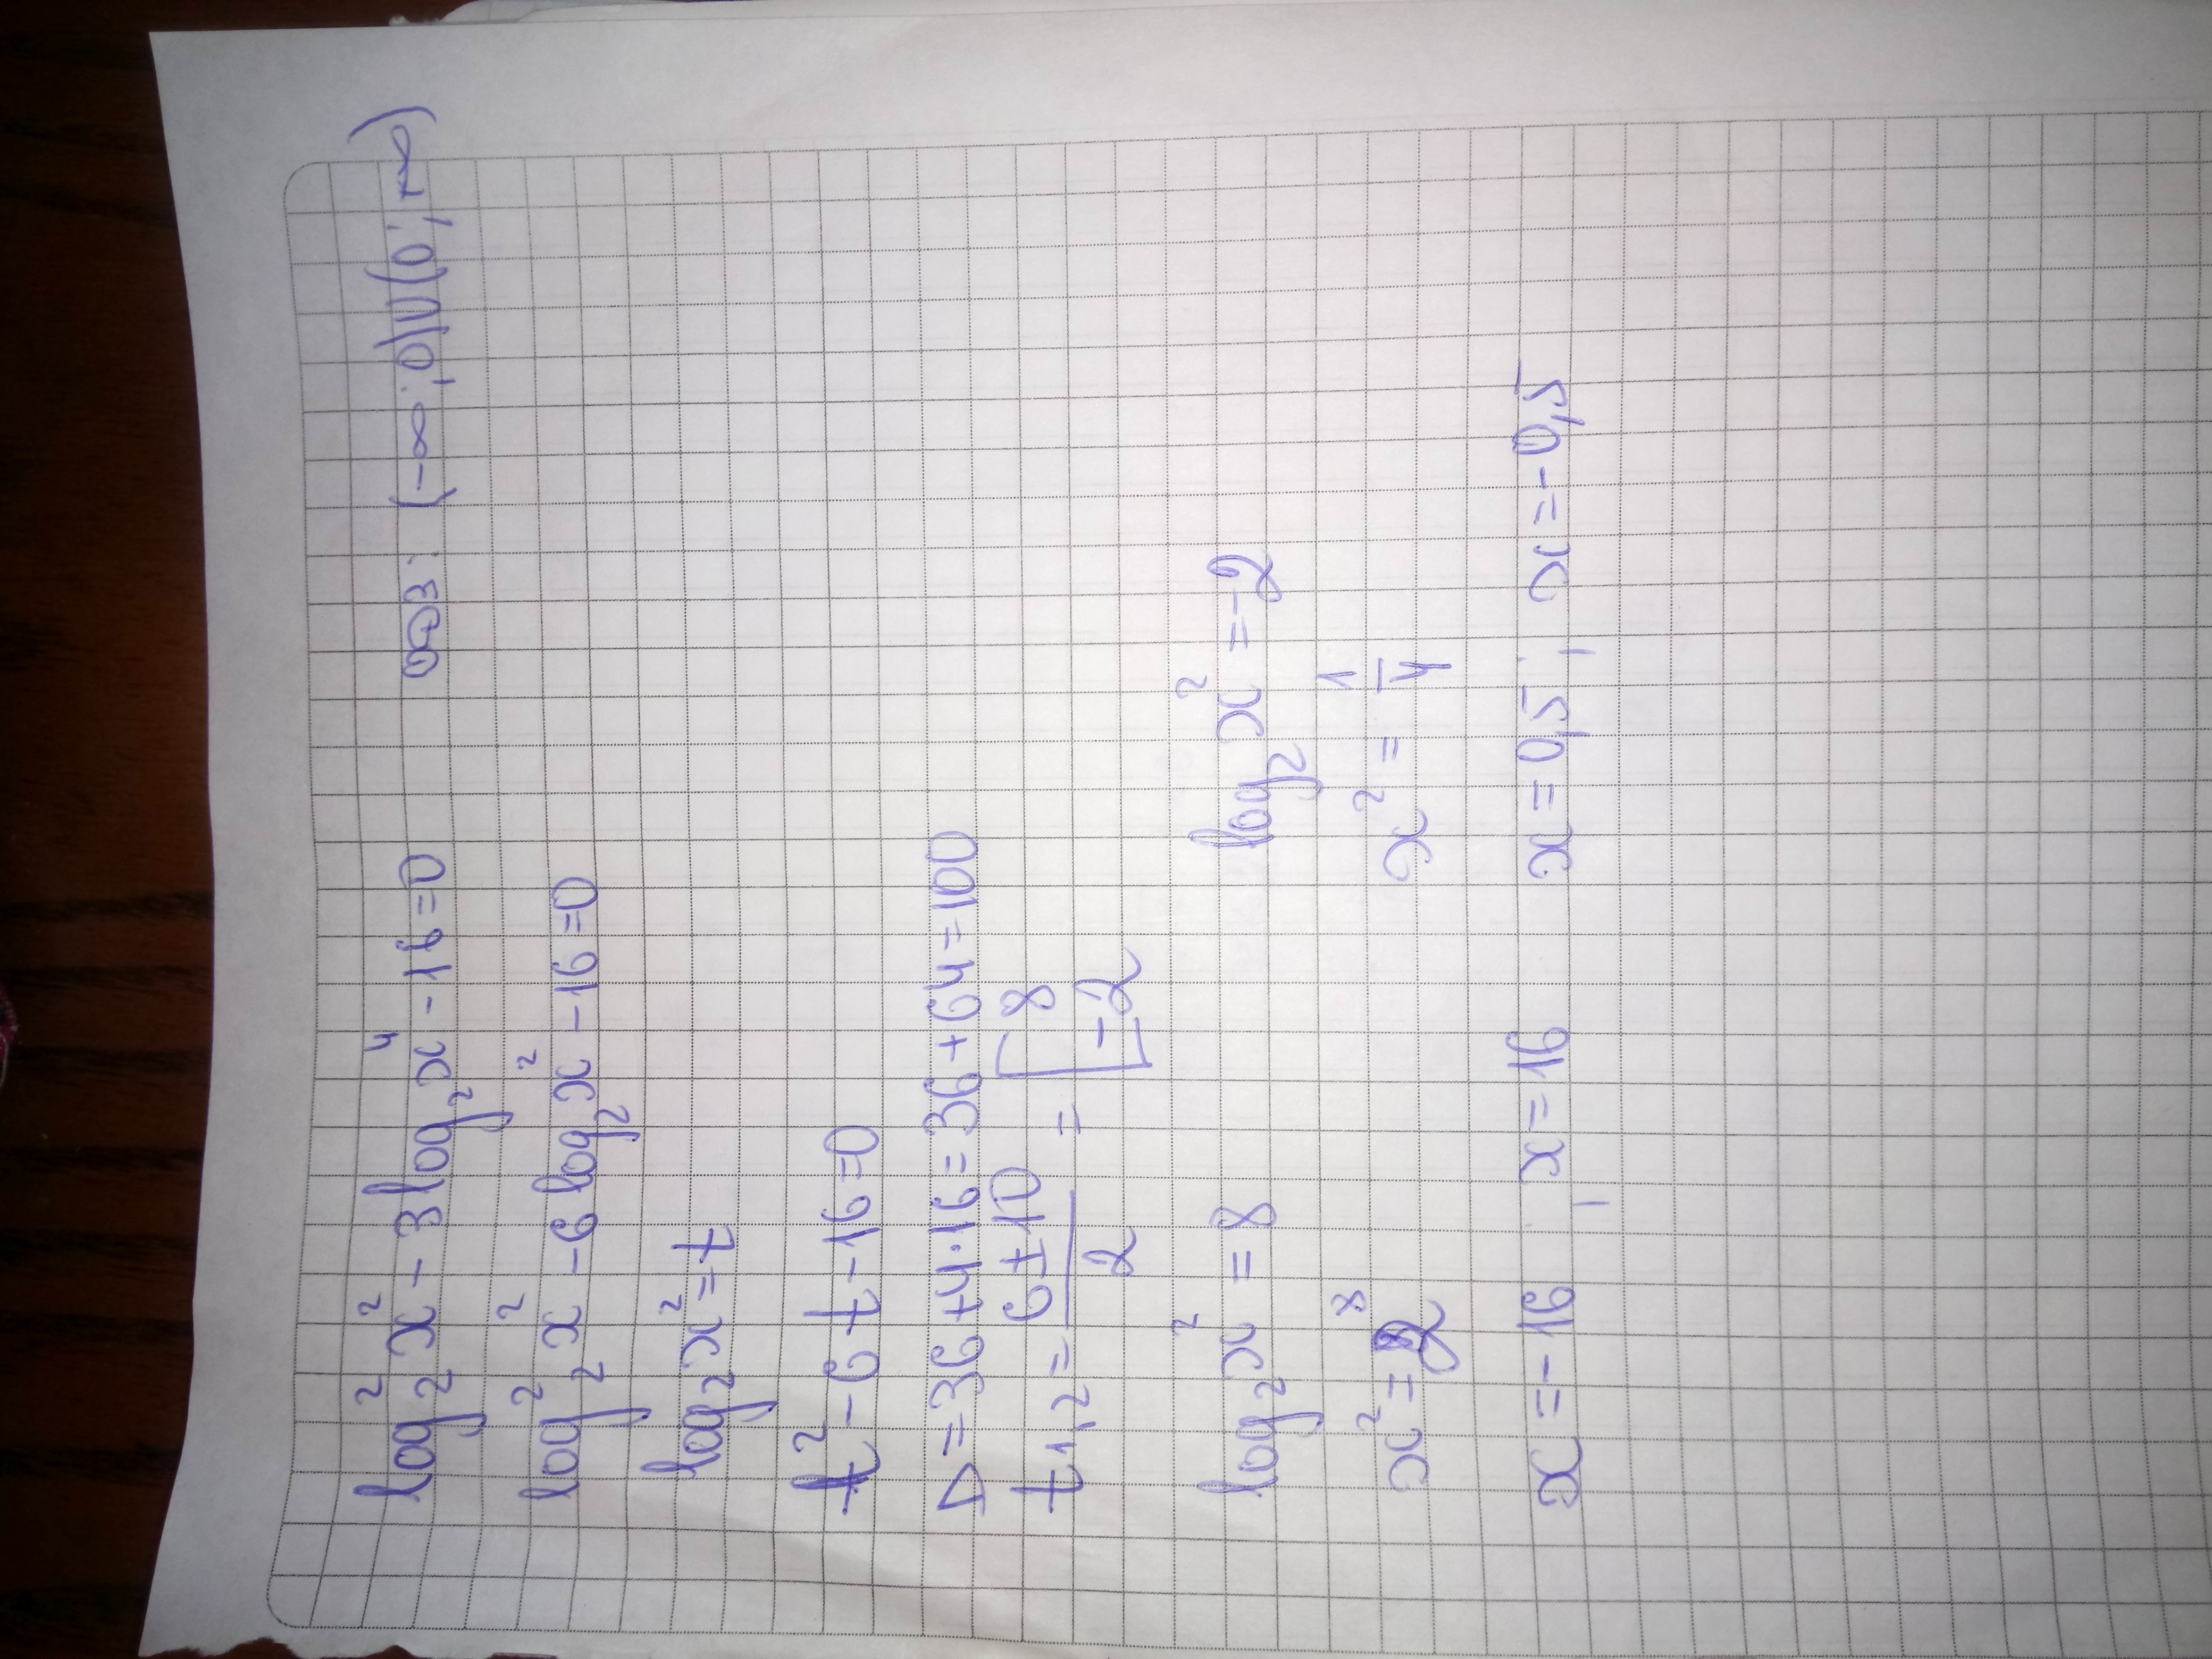 log₂² x² - 3 log₂ x⁴ - 16 = 0   одз: (-∞; 0)∪(0; +∞)
log₂² x² - 6 log₂ x² - 16 = 0
log₂ x² = t
t² - 6t - 16 = 0
D = 36 + 4·16 = 36 + 64 = 100
t₁,₂ = (6 ± 10)/2 = [8 -2
log₂ x² = 8   log₂ x² = -2
x² = 2⁸   x² = 1/4
x = -16, x = 16   x = 0,5; x = -0,5